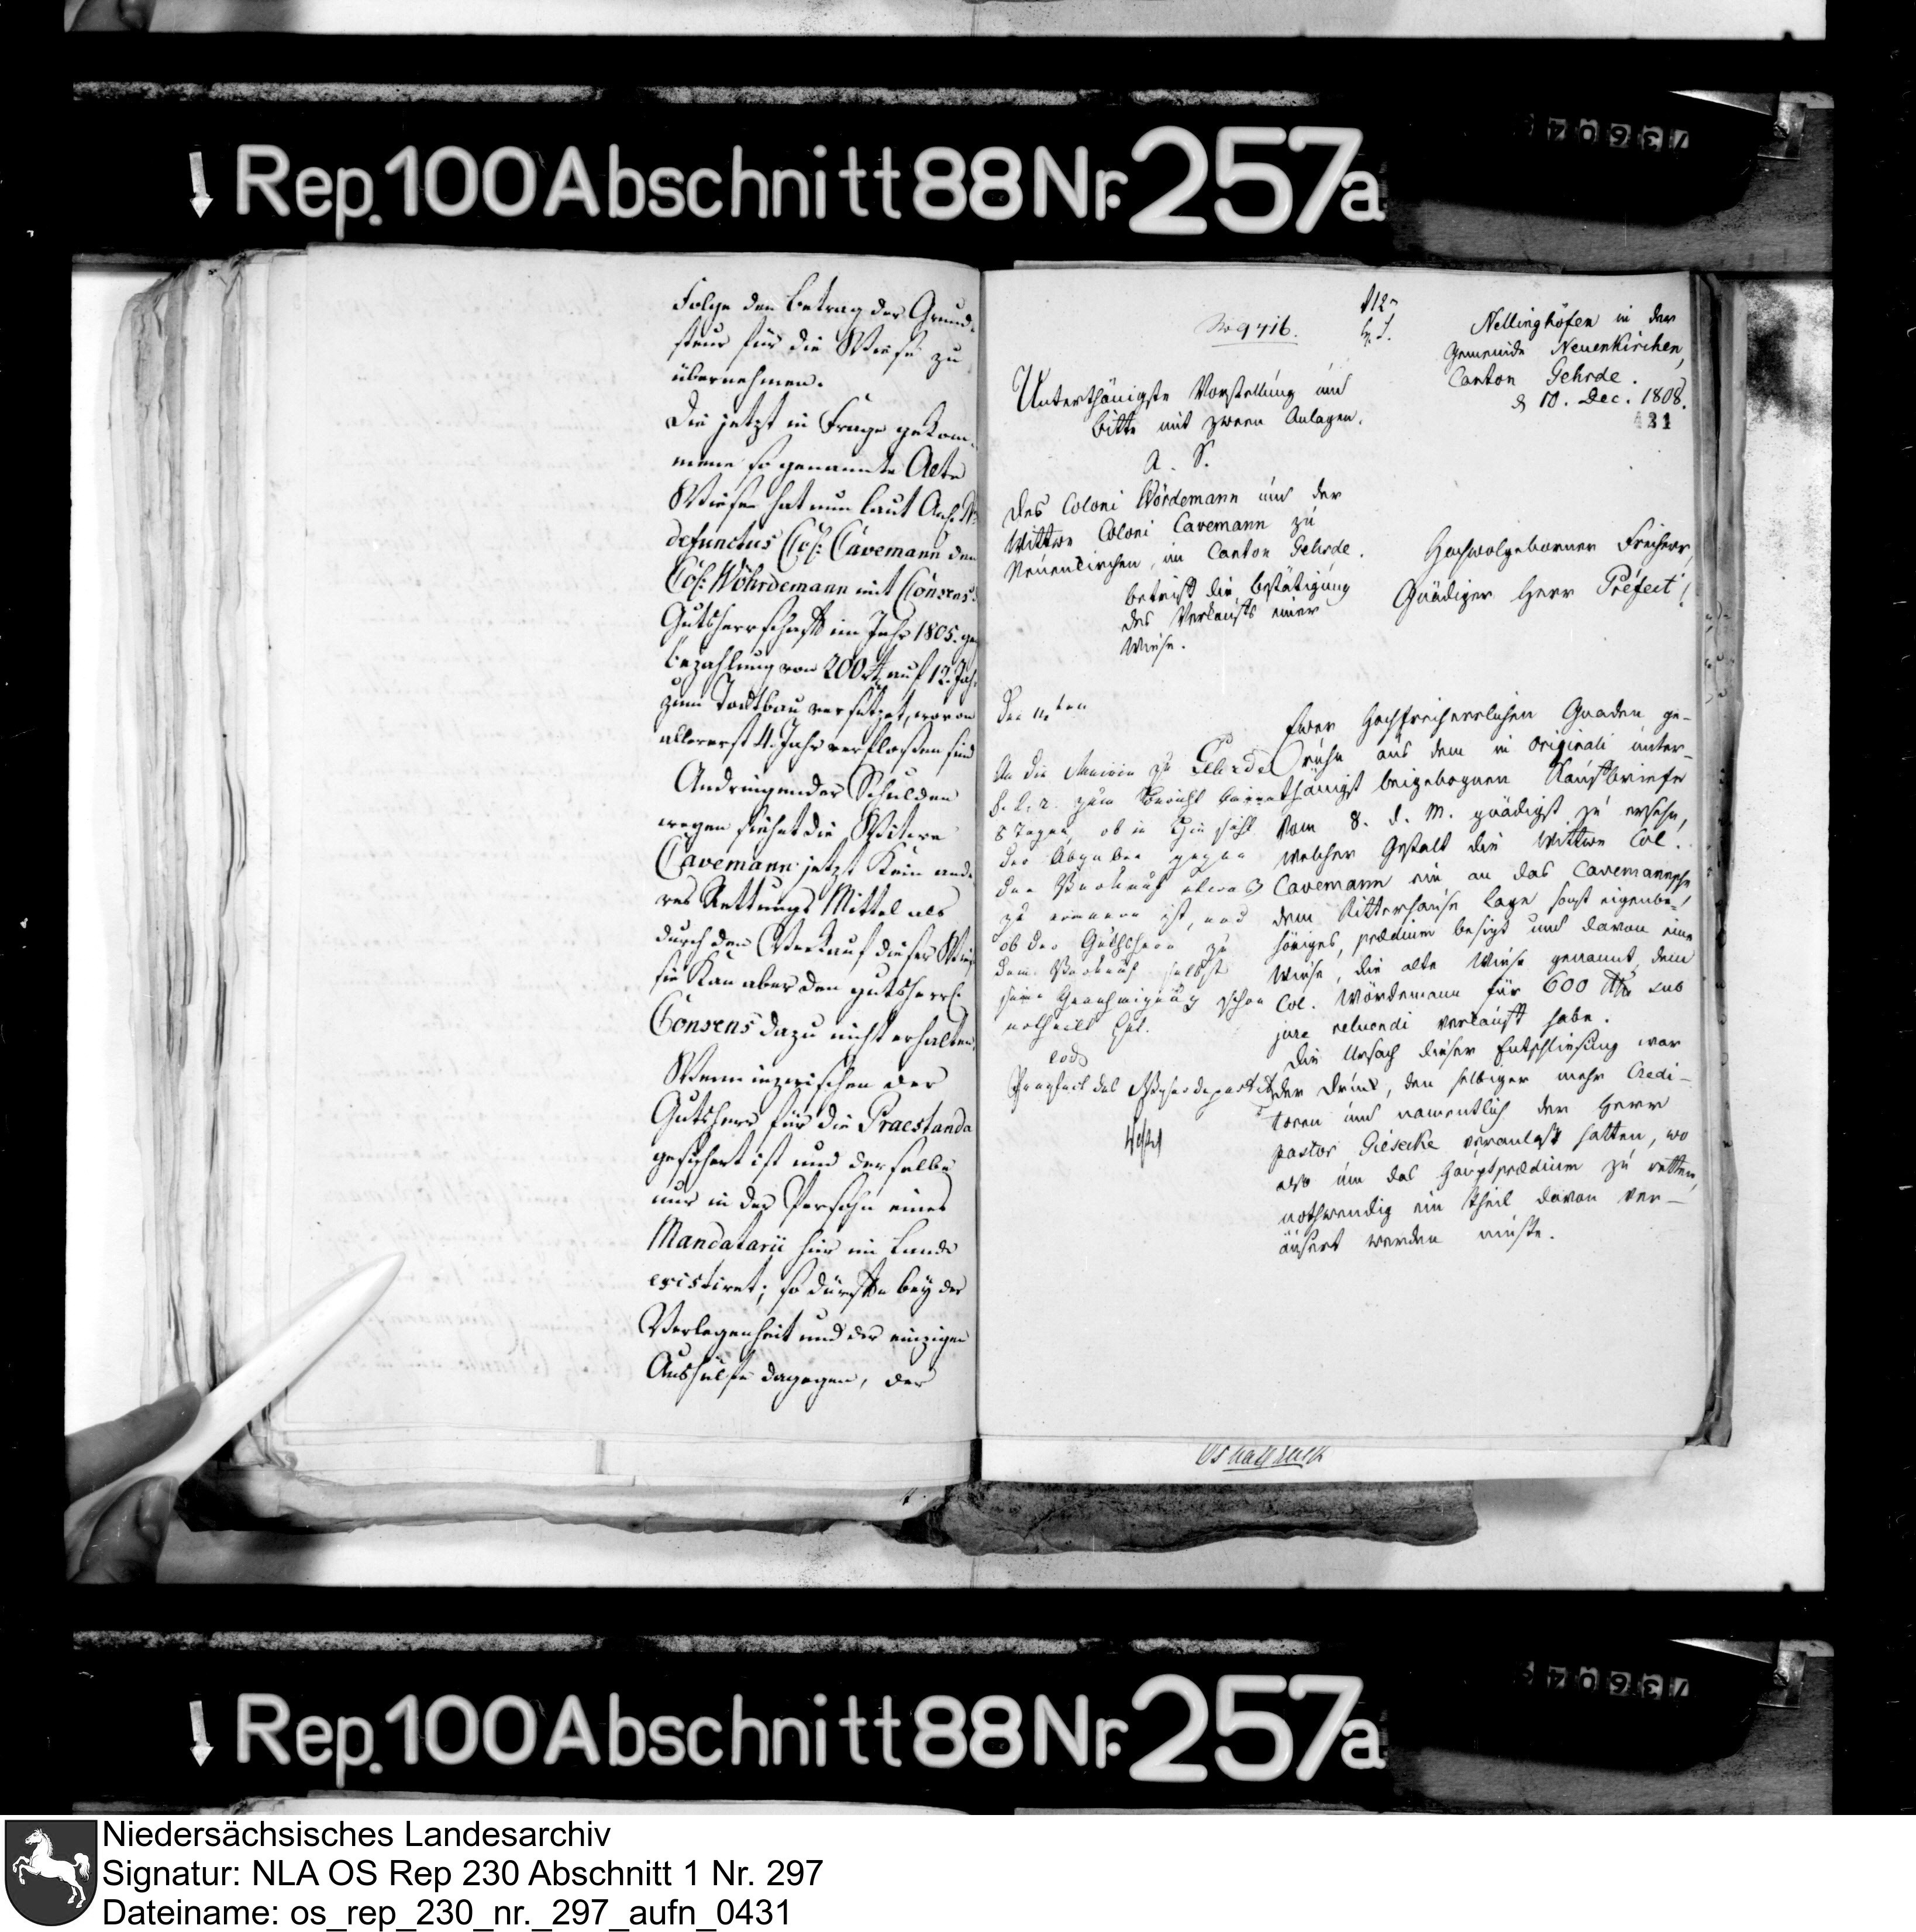 73604
Rep. 100 Abschnitt 88 Nr. 257a
Folge den Betrag der Grund-
steur für die Wiese zu
übernehmen.
Die jetzt in Frage gekom-
mene so genannte Aete
Wiese hat nun laut Anl.
defunctus Col: Cavemann dem
Col: Wöhrdemann mit Consens
Gutsherrschaft im Jahr 1805. gegen
Bezahlung von 200 rt auf 12. Jahr
zum Todtbau versetzet, wovon
allererst 4. Jahr verfloßen sind
Andringender Schulden
wegen siehet die Witwe
Cavemann jetzt Kein ande-
res Rettungs Mittel als
durch den Verkauf dieser Wiese
sie Kan aber den gutsherrl.
Consens dazu nicht erhalten.
Wenn inzwischen der
Gutsherr für die Praestanda
gesichert ist und derselbe
nur in der Persohn eines
Mandatarii hier im Lande
existiret; so dürfte bey der
Verlegenheit und der einzigen
Aushülfe dagegen, der
No 9716.
Nellinghöfen in der
Gemeinde Neuenkirchen,
Canton Gehrde.
d 10. Dec. 1808.
431
Unterthänigste Vorstellung und
Bitte mit zween Anlagen.
A. S.
Des Coloni Wördemann und der
Wittwe Coloni Cavemann zu
Neuenkirchen, im Canton Gehrde.
betrift die Bestätigung
des Verkaufs einer
Wiese.
Hochwolgeborner Freiherr,
Gnädiger Herr Préfect!
Den 11ten
An die Mairie zu Gehrde
s. l. r. zum Bericht binnen
8 Tagen, ob in Hinsicht
der Abgaben gegen
den Verkauf etwas
zu erinnern ist, und
ob der Gutsherr zu
dem Verkauf selbst
seine Genehmigung schon
ertheilt hat.
eod
Ewer Hochfreiherrlichen Gnaden ge-
ruhn aus dem in originali unter-
thänigst beigebognen Kaufbriefe
vom 8. d. M. gnädigst zu ersehn,
welcher Gestalt die Wittwe Col.
Cavemann ein an das Cavemannsche
dem Ritterhause Lage sonst eigenbe-
höriges, prædium besizt und davon eine
Wiese, die alte Wiese genannt, dem
Col. Wördemann für 600 Rthr sub
jure reluendi verkauft habe.
Die Ursach dieser Entschliesung war
der Druck, den selbiger mehr Credi-
toren und namentlich der Herr
pastor Giesecke veranlaßt hatten, wo
also um das Hauptprædium zu retten,
nothwendig ein Theil davon ver-
äusert werden muste.
Osnabrück
73604
Rep. 100 Abschnitt 88 Nr. 257a
Niedersächsisches Landesarchiv
Signatur: NLA OS Rep 230 Abschnitt 1 Nr. 297
Dateiname: os_rep_230_nr._297_aufn_0431